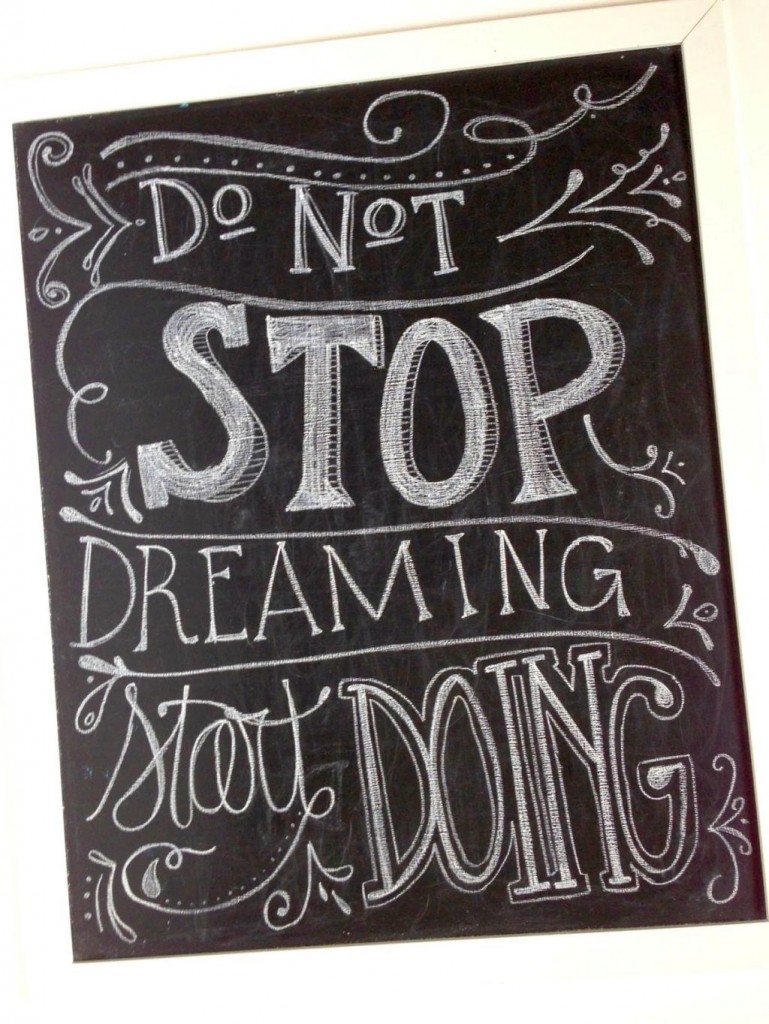 Do Not
STOP
DREAMING
start DOING